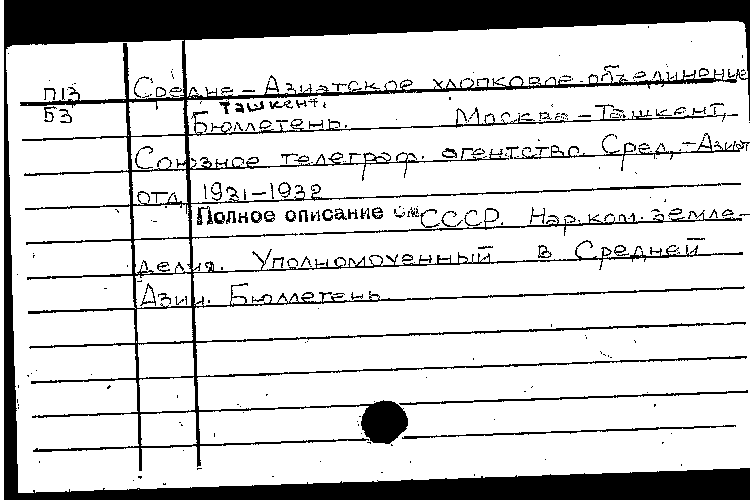 П13 Средне-Азиатское хлопковое объединение
Б3 Ташкент.
Бюллетень. Москва-Ташкент,
Союзное телеграф. агентство. Сред.-Азиат
отд. 1931-1932
Полное описание см СССР. Нар. ком. земле-
делия. Уполномоченный в Средней
Азии. Бюллетень.